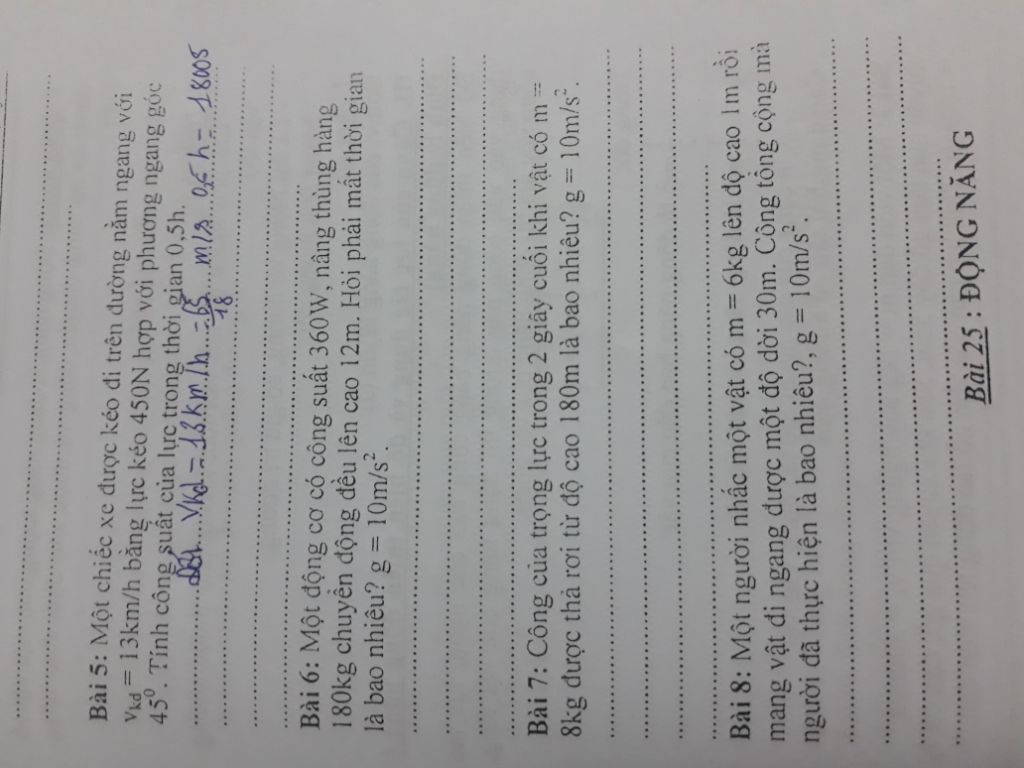 Bài 5: Một chiếc xe được kéo đi trên đường nằm ngang với
vkđ = 13km/h bằng lực kéo 450N hợp với phương ngang góc
45⁰. Tính công suất của lực trong thời gian 0,5h.
Đổi Vkđ = 13km/h = 65/18 m/s 0,5h = 1800s
Bài 6: Một động cơ có công suất 360W, nâng thùng hàng
180kg chuyển động đều lên cao 12m. Hỏi phải mất thời gian
là bao nhiêu? g = 10m/s².
Bài 7: Công của trọng lực trong 2 giây cuối khi vật có m =
8kg được thả rơi từ độ cao 180m là bao nhiêu? g = 10m/s².
Bài 8: Một người nhấc một vật có m = 6kg lên độ cao 1m rồi
mang vật đi ngang được một độ dời 30m. Công tổng cộng mà
người đã thực hiện là bao nhiêu?, g = 10m/s².
Bài 25 : ĐỘNG NĂNG